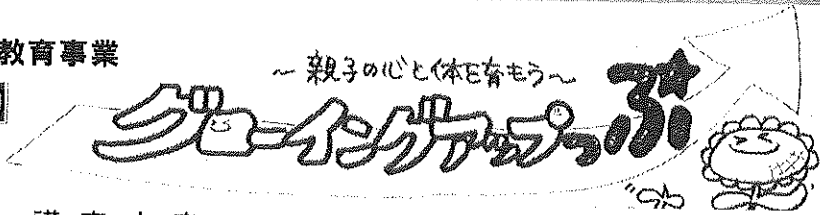 教育事業
～親子の心と体を育もう～
グローイングアップっぷ